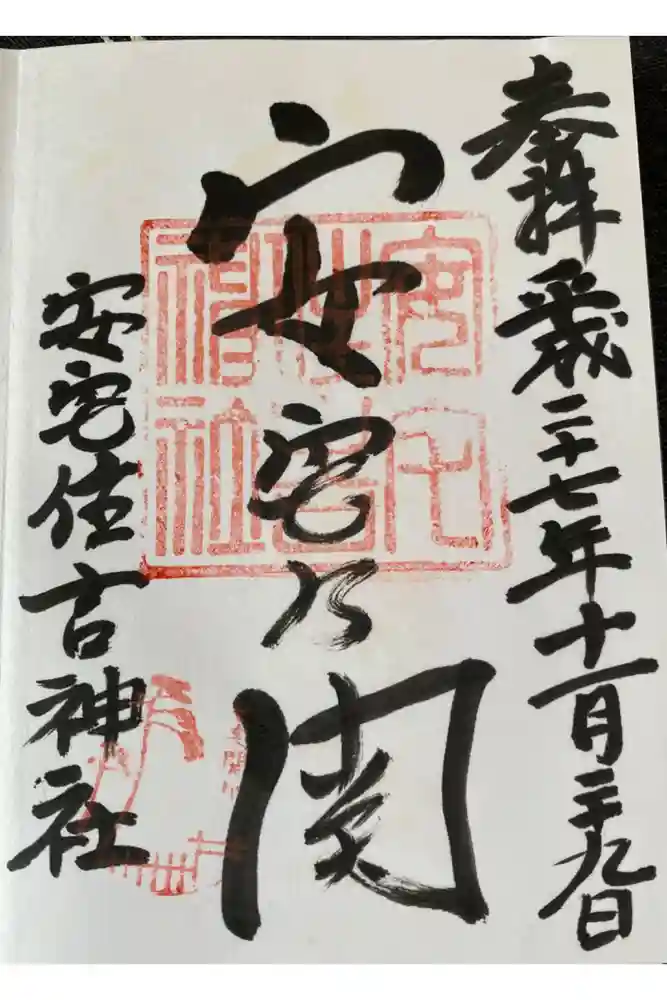 奉拝 平成二十七年十一月二十九日
安宅乃関
安宅住吉神社
安宅住吉神社